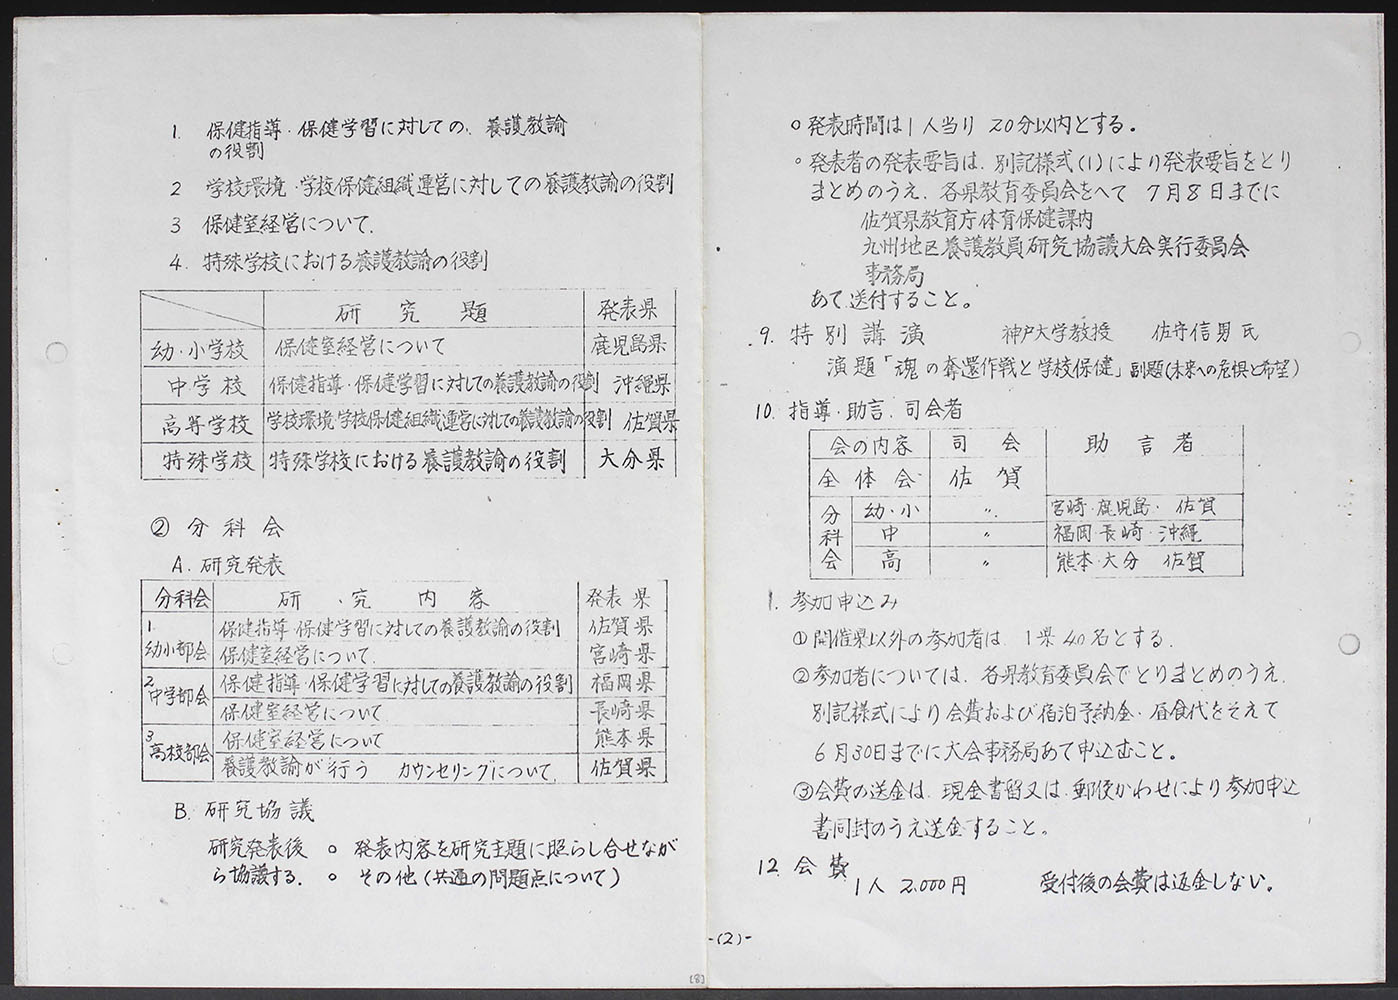 1. 保健指導・保健学習に対しての、養護教諭
の役割
2 学校環境・学校保健組織運営に対しての養護教諭の役割
3 保健室経営について.
4. 特殊学校における養護教諭の役割
研究題 発表県
幼・小学校 保健室経営について 鹿児島県
中学校 保健指導・保健学習に対しての養護教諭の役割 沖縄県
高等学校 学校環境・学校保健組織運営に対しての養護教諭の役割 佐賀県
特殊学校 特殊学校における養護教諭の役割 大分県
② 分科会
A. 研究発表
分科会 研・究内容 発表県
1. 幼小部会 保健指導・保健学習に対しての養護教諭の役割 佐賀県
保健室経営について. 宮崎県
2. 中学部会 保健指導・保健学習に対しての養護教諭の役割 福岡県
保健室経営について 長崎県
3. 高校部会 保健室経営について 熊本県
養護教諭が行う カウンセリングについて. 佐賀県
B. 研究協議
研究発表後 ○ 発表内容を研究主題に照らし合せなが
ら協議する. ○ その他(共通の問題点について)
○ 発表時間は1人当り 20分以内とする。
○ 発表者の発表要旨は、別記様式(1)により発表要旨をとり
まとめのうえ、各県教育委員会をへて 7月8日までに
佐賀県教育庁体育保健課内
九州地区養護教員研究協議大会実行委員会
事務局
あて送付すること。
9. 特別講演 神戸大学教授 佐守信男氏
演題「魂の奪還作戦と学校保健」副題(未来への危惧と希望)
10. 指導・助言. 司会者
会の内容 司会 助言者
全体会 佐賀
分科会 幼・小 〃 宮崎・鹿児島・佐賀
中 〃 福岡・長崎・沖縄
高 〃 熊本・大分 佐賀
1. 参加申込み
①開催県以外の参加者は 1県40名とする.
②参加者については、各県教育委員会でとりまとめのうえ.
別記様式により会費および宿泊予納金・昼食代をそえて
6月30日までに大会事務局あて申込むこと。
③会費の送金は、現金書留又は、郵便かわせにより参加申込
書同封のうえ送金すること。
12. 会費
1人 2,000円 受付後の会費は返金しない。
-(2)-
[8]